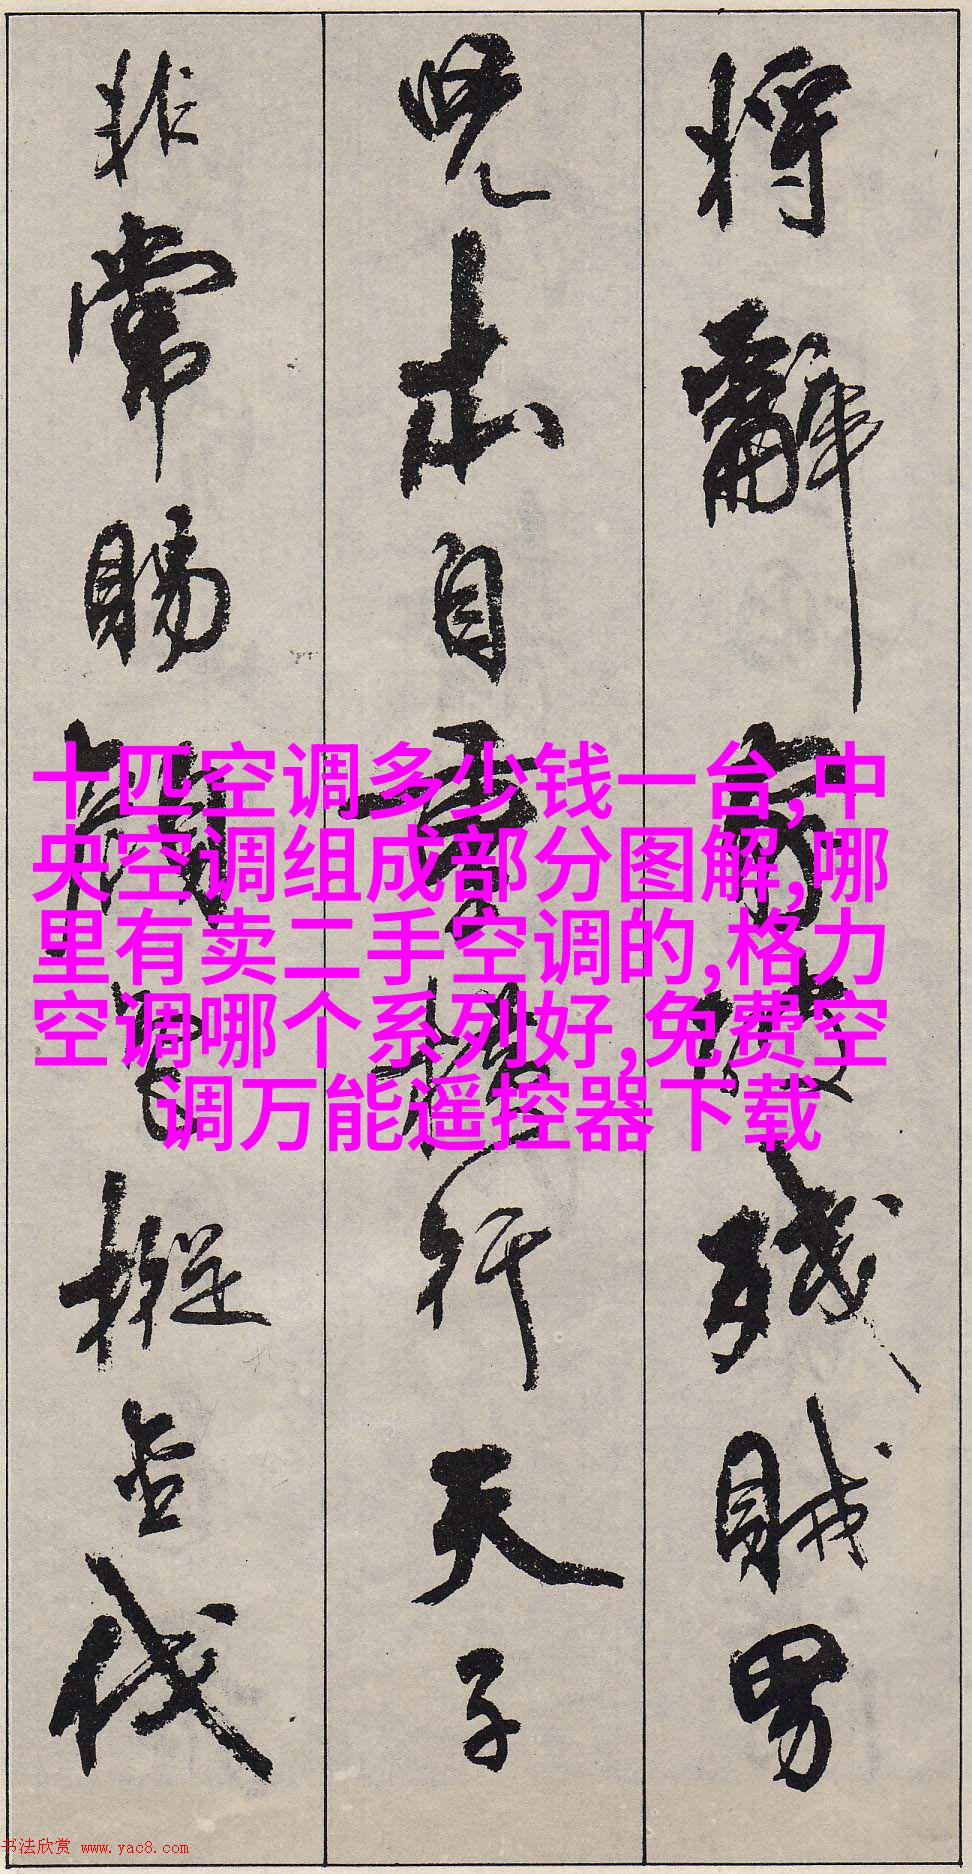 将辭帝使残賊男
兇出自雲 行天子
非常賜 書 摐金伐
十匹空调多少钱一台,中
央空调组成部分图解,哪
里有卖二手空调的,格力
空调哪个系列好,免费空
调万能遥控器下载
书法欣赏 www.yac8.com